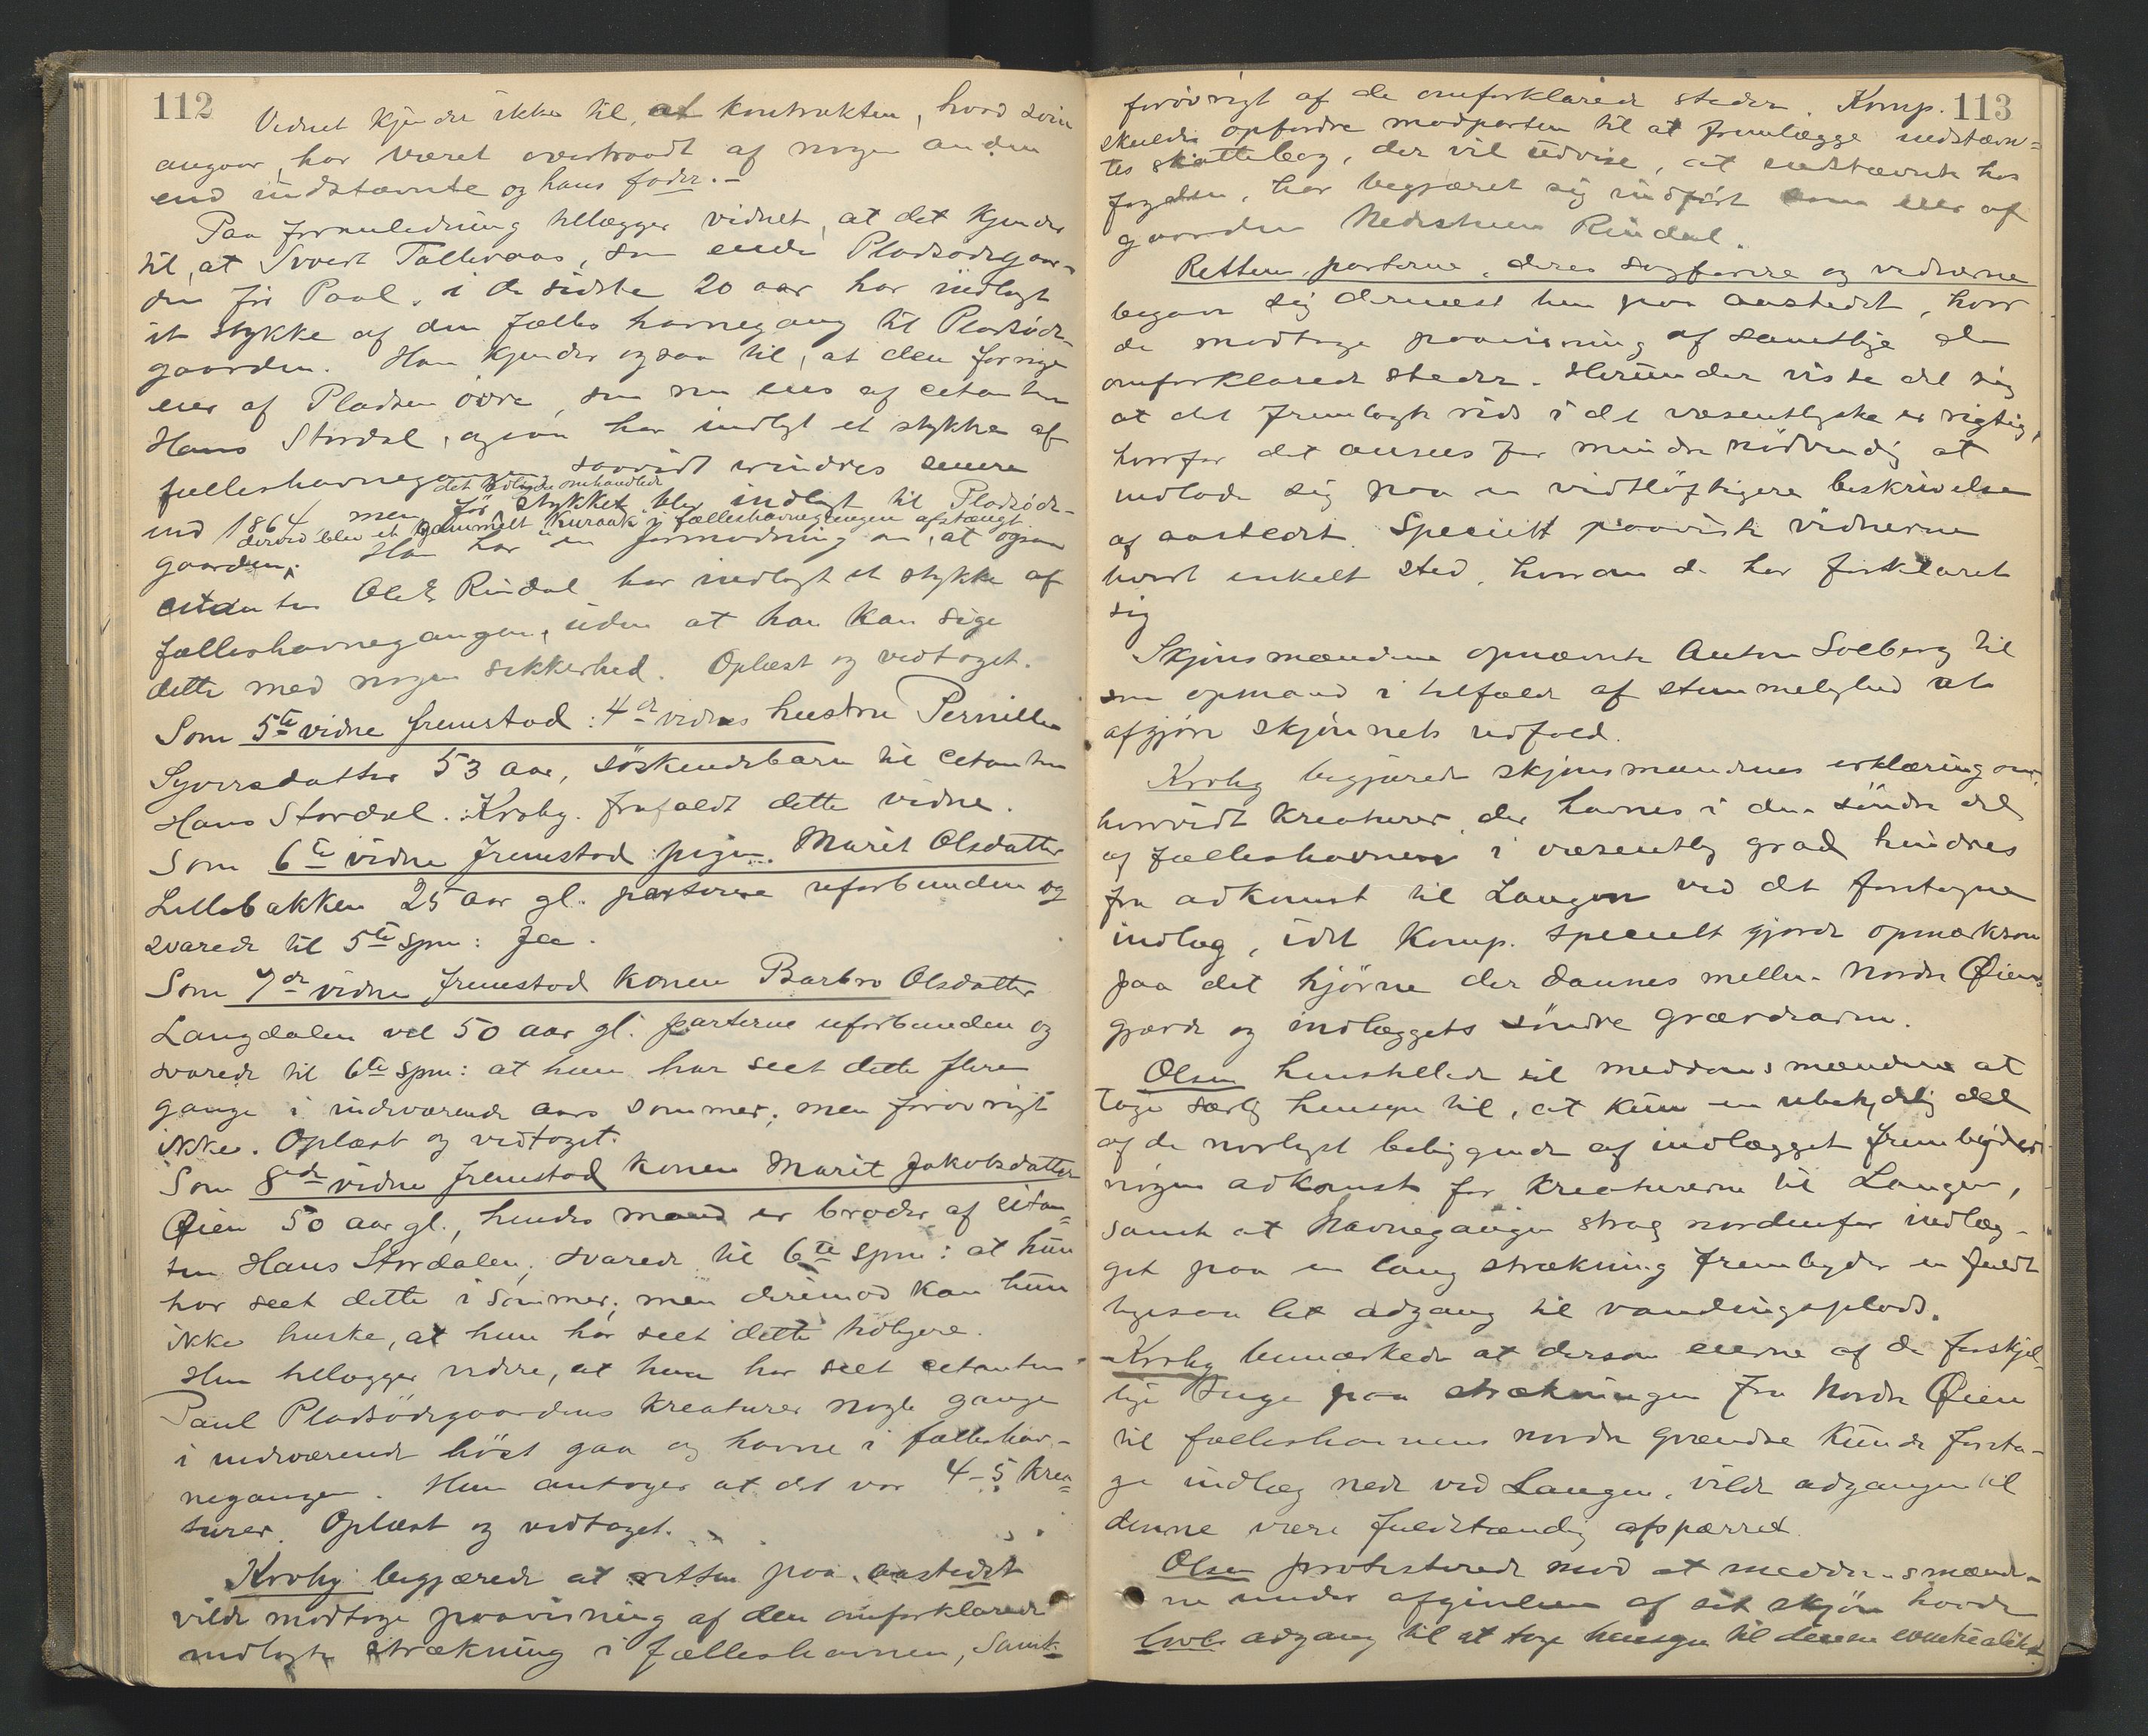 112
Vidnet kjender ikke til, at kontrakten, hvad veien
angaar, har været overtraadt af nogen anden
end indstævnte og hans fader.-
Paa foranledning tillægger vidnet, at det kjender
til, at Sivert Tallevaas, som eiede Pladsödegaar-
den för Paul, i de sidste 20 aar har indlagt
et stykke af den fælles havnegang til Pladsöde-
gaarden. Han kjender ogsaa til, at den forrige
eier af Pladsen övre, som nu eies af citanten
Hans Stordal, ogsaa har indlagt et stykke af
fælleshavnegangen saavidt erindres senere
end 1864, men för det tidligere omhandlede stykket blev indlagt til Pladsöde-
derved blev et gammelt kuraak i fælleshavnegangen afstængt
gaarden. Han har en formodning om, at ogsaa
citanten Ole E Rindal har indlagt et stykke af
fælleshavnegangen, uden at han kan sige
dette med nogen sikkerhed. Oplæst og vedtaget.
Som 5te vidne fremstod: 4de vidnes hustru Pernille
Syversdatter 53 aar, söskendebarn til citanten
Hans Stordal. Kroby. frafaldt dette vidne.
Som 6te vidne fremstod pigen Marit Olsdatter
Lillebakken 25 aar gl. parterne uforbunden og
svarede til 5te spm: Ja.
Som 7de vidne fremstod konen Barbro Olsdatter
Langdalen vel 50 aar gl. parterne uforbunden og
svarede til 6te spm: at hun har seet dette flere
gange i indeværende aars sommer; men forövrigt
ikke. Oplæst og vedtaget.
Som 8de vidne fremstod konen Marit Jakobsdatter
Øien 50 aar gl., hendes mand er broder af citan=
ten Hans Stordalen, svarede til 6te spm: at hun
har seet dette i sommer; men derimod kan hun
ikke huske, at hun har seet dette tidligere.
Hun tillægger videre, at hun har seet citanten
Paul Pladsödegaardens kreaturer nogle gange
i indeværende höst gaa og havne i fælleshav-
negangen. Hun antager at det var 4-5 krea=
turer. Oplæst og vedtaget.
Kroby begjærede at retten paa aastedet
vilde modtage paavisning af den omforklarede
indlagte strækning i fælleshavnen, samt
113
forövrigt af de omforklarede steder. Komp.
skulde opfordre modparten til at fremlægge indstævn=
tes skattebog, der vil udvise, at indstævnte hos
fogden, har begjæret sig indfört som eier af
gaarden Nedistuen Rindal.
Retten, parterne, deres sagförere og vidnerne
begav sig dernæst hen paa aastedet, hvor
de modtoge paavisning af samtlige de
omforklarede steder. Herunder viste det sig
at det fremlagte rids i det væsentligste er rigtig,
hvorfor det ansees for mindre nödvendig at
indlade sig paa en vidtlöftigere beskrivelse
af aastedet. Specielt paaviste vidnerne
hvert enkelt sted, hvorom de har forklaret
sig
Skjönsmændene opnævnte Anton Solberg til
som opmand i tilfælde af stemmelighed at
afgjöre skjönnets udfald.
Kroby begjærede skjönsmændenes erklæring om,
hvorvidt kreaturer, der havnes i den söndre del
af fælleshavnen i væsentlig grad hindres
fra adkomst til Laugen ved det foretagne
indlæg, idet Komp. specielt gjorde opmærksom
paa det hjörne der dannes mellem Nordre Øiens
gjærde og indlæggets söndre grændsearm.
Olsen henstillede til meddomsmændene at
tage særlig hensyn til, at kun en ubetydelig del
af de norligst beliggende af indlægget frembyder
nogen adkomst for kreaturerne til Laugen,
samt at havnegangen strax nordenfor indlæg-
get paa en lang strækning frembyder en fuldt
ligesaa let adgang til vandingsplads.
Kroby bemærkede at dersom eierne af de forskjel-
lige Enge paa strækningen fra Nordre Øien
til fælleshavnens nordre grændse kunde foreta-
ge indlæg nede ved Laugen, vilde adgangen til
denne være fuldstændig afspærret.
Olsen protesterede mod at meddomsmænde-
ne under afgivelsen af sit skjön havde
lovl. adgang til at tage hensyn til denne eventualitet